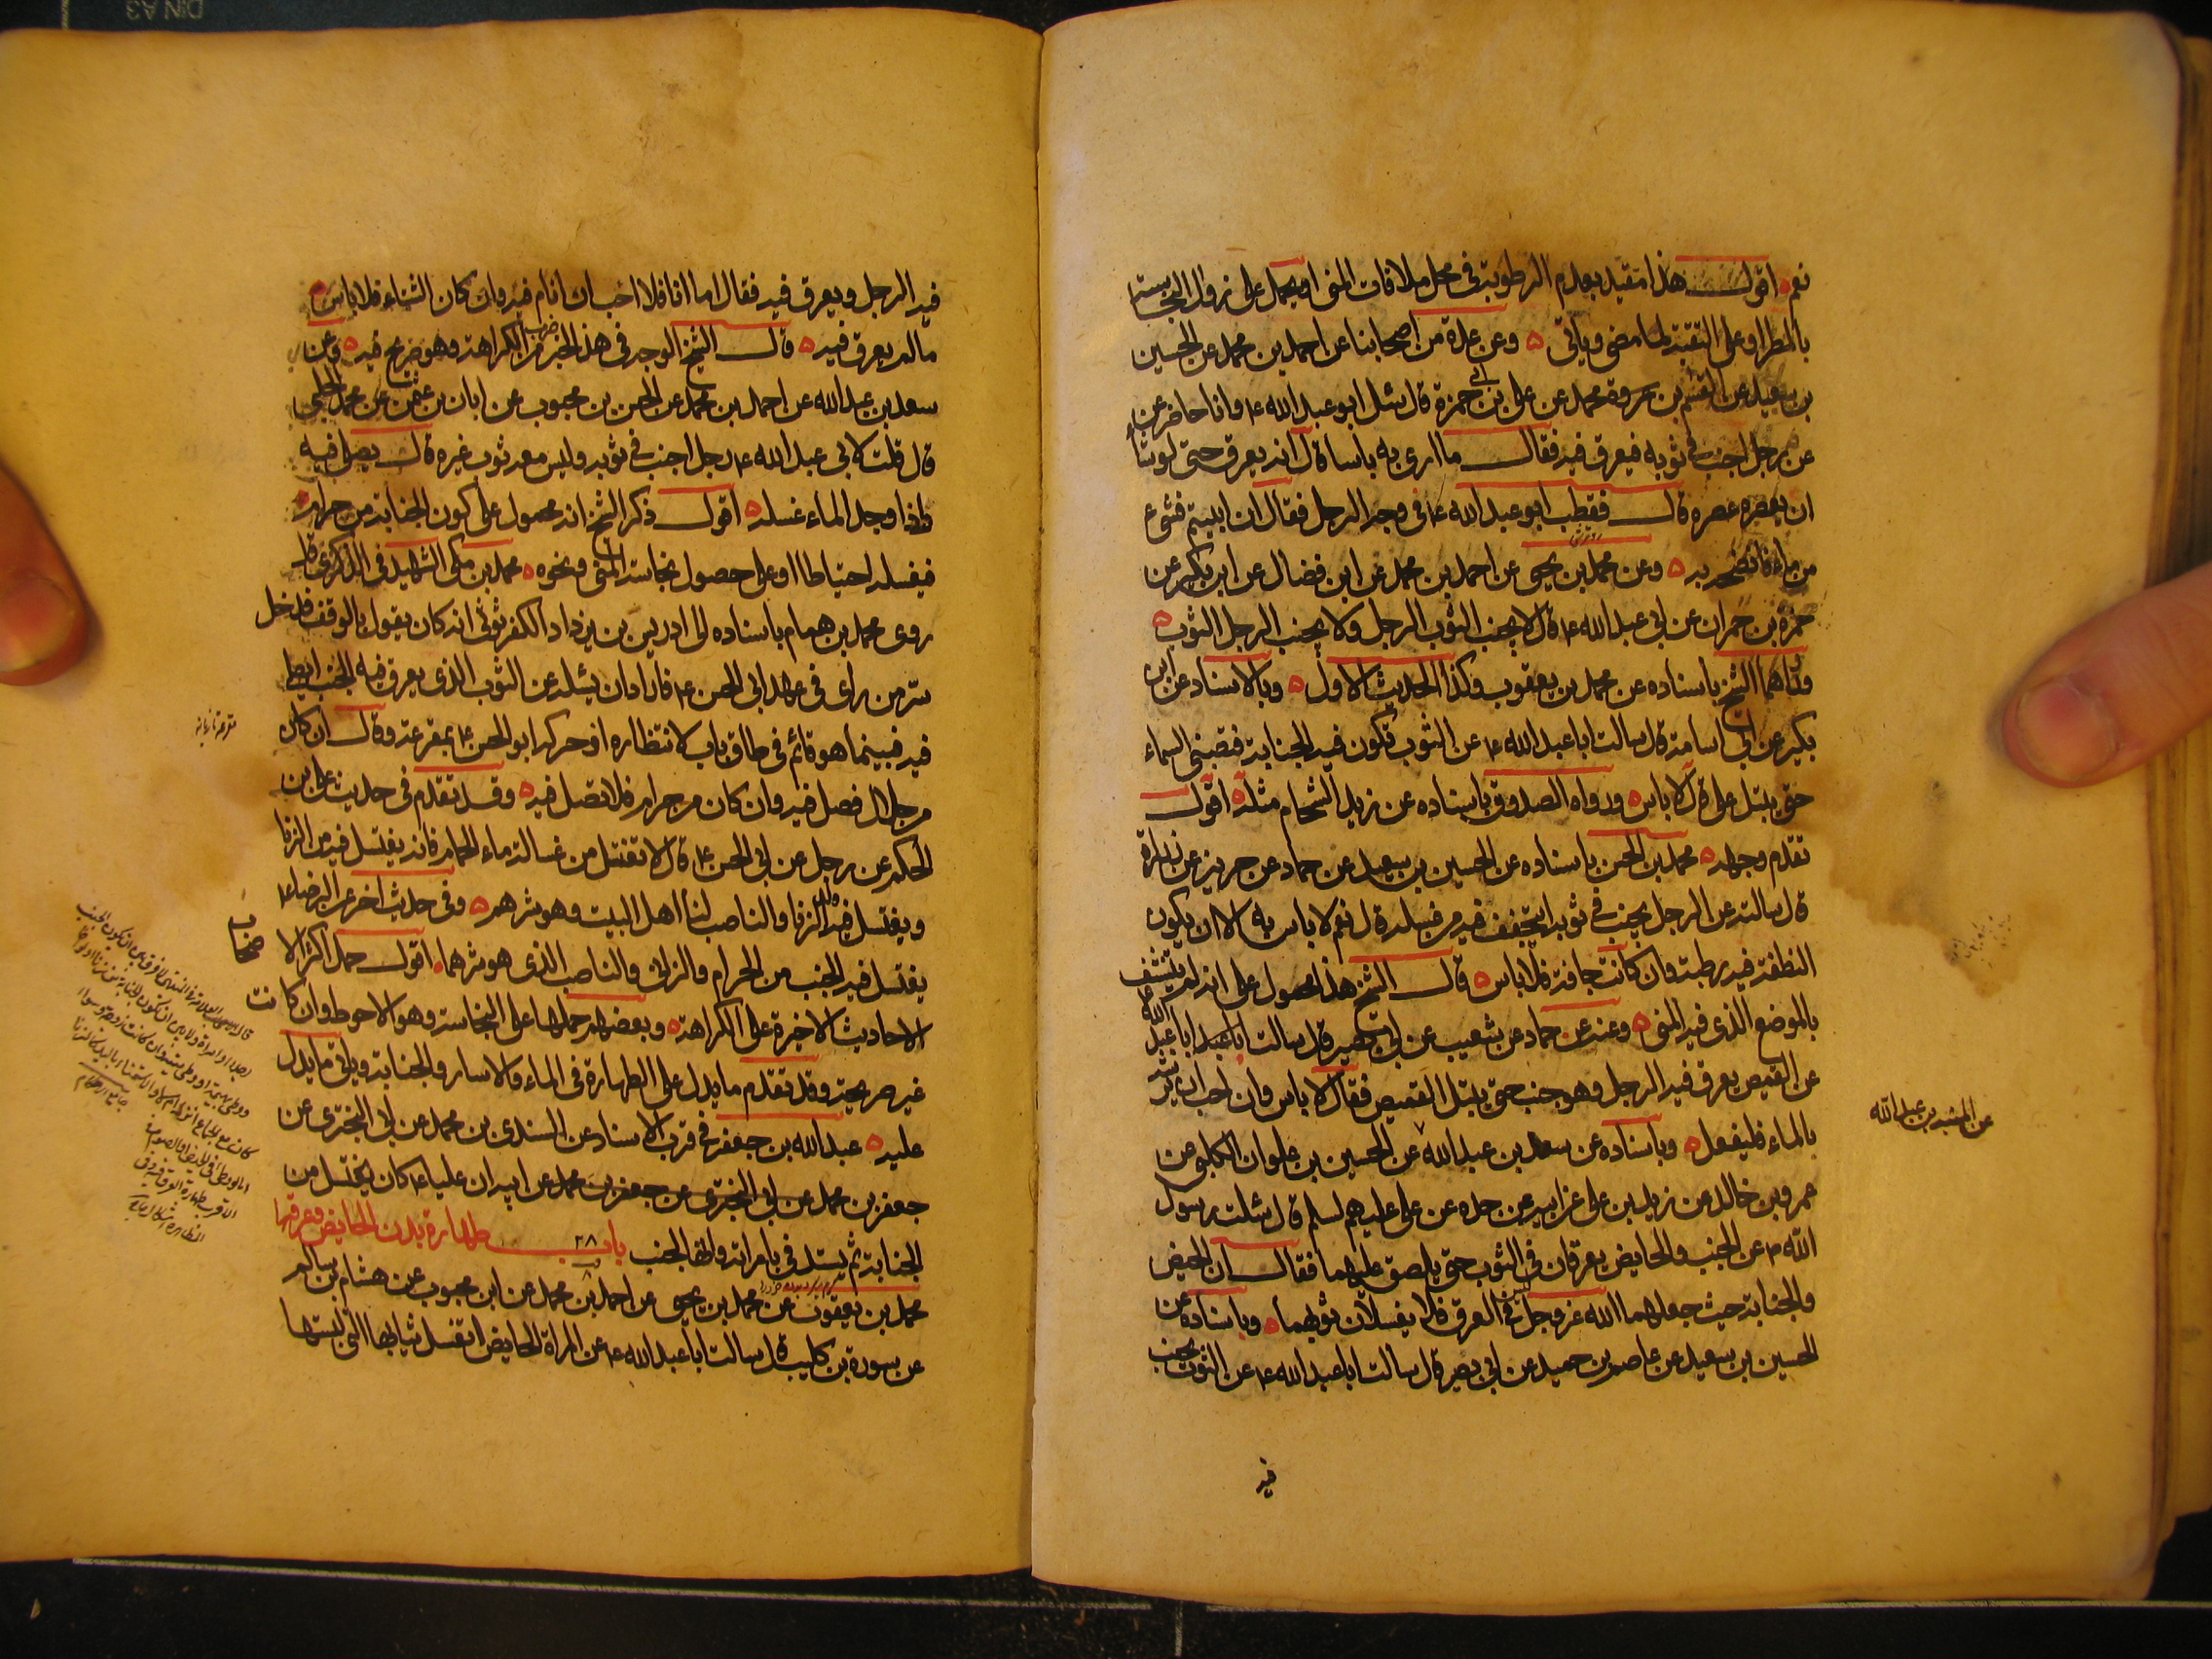 نعم اقول هذا مقيد بعدم الرطوبة في محل ملاقات المنى او يحمل على زوال النجاسة
بالمطر او على التقية لما مضى وياتى وعن عدة من اصحابنا عن احمد بن محمد عن الحسين
بن سعيد عن القسم بن عروة محمد عن على بن ابى حمزة قال سئل ابو عبد الله ع وانا حاضر عن
عن رجل اجنب في ثوبه فيعرق فيه فقال ما ارى به باسا قال انه يعرق حتى لو شاء
ان يعصره عصره قال فقطب ابو عبد الله ع في وجه الرجل فقال ان ابيتم فشىء
من ماء فانضحه به وعن محمد بن يحيى عن احمد بن محمد عن ابن فضال عن ابن بكير عن
حمزة بن حمران عن ابى عبد الله ع قال لا يجنب الثوب الرجل ولا يجنب الرجل الثوب
ورواهما الشيخ باسناده عن محمد بن يعقوب وكذا الحديث الاول وبالاسناد عن ابن
بكير عن ابى اسامة قال سالت ابا عبد الله ع عن الثوب تكون فيه الجنابة فتصيبنى السماء
حتى يبتل على قال لا باس ورواه الصدوق باسناده عن زيد الشحام مثله اقول
تقدم وجهه محمد بن الحسن باسناده عن الحسين بن سعيد عن حماد عن حريز عن زرارة
قال سالته عن الرجل يجنب في ثوبه ايتجفف فيه من غسله قال نعم لا باس به الا ان يكون
النطفة فيه رطبة فان كانت جافة فلا باس قال الشيخ هذا محمول على انه لم يتنشف
بالموضع الذى فيه المنى وعنه عن حماد عن شعيب عن ابى بصير قال سالت ابا عبد الله ع
عن القميص يعرق فيه الرجل وهو جنب حتى يبتل القميص فقال لا باس وان احب ان يرشه
بالماء فليفعل وباسناده عن سعد بن عبد الله عن الحسين بن علوان الكلبى عن
عن المنبه بن عبد الله
عمرو بن خالد عن زيد بن على عن ابيه عن جده عن على عليهم السلم قال سئلت رسول
الله ص عن الجنب والحايض يعرقان في الثوب حتى يلصق عليهما فقال ان الحيض
والجنابة حيث جعلهما الله عز وجل ليس في العرق فلا يغسلان ثوبهما وباسناده عن
الحسين بن سعيد عن عاصم بن حميد عن ابى بصير قال سالت ابا عبد الله ع عن الثوب يجنب
فيه
فيه الرجل ويعرق فيه فقال اما انا فلا احب ان انام فيه وان كان الشتاء فلا باس
ما لم يعرق فيه قال الشيخ الوجه في هذا الخبر ضرب من الكراهة وهو صريح فيه وعن
سعد بن عبد الله عن احمد بن محمد عن الحسن بن محبوب عن ابان بن عثمن عن محمد الحلبى
قال قلت لابى عبد الله ع رجل اجنب في ثوبه وليس معه ثوب غيره قال يصلى فيه
واذا وجد الماء غسله اقول ذكر الشيخ انه محمول على كون الجنابة من حرام
فيغسله احتياطا او على حصول نجاسة المنى ونحوه محمد بن مكى الشهيد في الذكرى قال
روى محمد بن همام باسناده الى ادريس بن يزداد الكفرثوثى انه كان يقول بالوقف فدخل
سر من راى في عهد ابى الحسن ع فاراد ان يسئله عن الثوب الذى يعرق فيه الجنب ايصلى
فيه فبينما هو قائم في طاق باب لانتظاره اذ حركه ابو الحسن ع بمقرعة وقال ان كان
من حلال فصل فيه وان كان من حرام فلا تصل فيه وقد تقدم في حديث على بن
الحكم عن رجل عن ابى الحسن ع قال لا تغتسل من غسالة ماء الحمام فانه يغتسل فيه من الزنا
ويغتسل فيه ولد الزنا والناصب لنا اهل البيت وهو شرهم وفى حديث اخر عن الرضا ع
يغتسل فيه الجنب من الحرام والزانى والناصب الذى هو شرهما اقول حمل اكثر الا
صحاب
الاحاديث الاخيرة على الكراهة وبعضهم حملها على النجاسة وهو الاحوط وان كانت
غير صريحة وقد تقدم ما يدل على الطهارة في الماء والاسار والجنابة وياتى ما يدل
عليه عبد الله بن جعفر في قرب الاسناد عن السندى بن محمد عن ابى البخترى عن
جعفر بن محمد عن ابى البخترى عن جعفر بن محمد عن ابيه ان عليا ع كان يغتسل من
الجنابة ثم يستدفى بامراته وانها لجنب باب ٢٨ طهارة بدن الحايض وعرقها
محمد بن يعقوب عن محمد بن يحيى عن احمد بن محمد عن ابن محبوب عن هشام بن سالم
عن سورة بن كليب قال سالت ابا عبد الله ع عن المراة الحايض اتغسل ثيابها التى لبستها